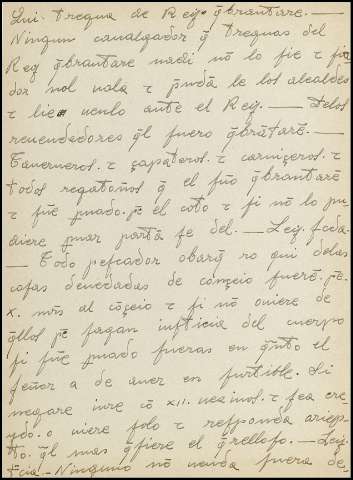 Qui. tregua de Rey. q̃brantare. —
Ningun caualgador q̃ treguas del
Rey q̃brantare nadi nõ lo fie τ fia
dor nol uala τ p̃nda le los alcaldes
τ lieuenlo ante el Rey. — Delos
reuendedores q̃l fuero q̃brãtarẽ. —
Tauerneros. τ çapateros. τ carniçeros. τ
todos regatoños q̃ el fũo q̃brantarẽ
τ fũe puado. pẽ el coto τ si nõ lo pu
diere pãar parta fe del. — Ley.
— Todo pescador obarq̃ro qui delas
cosas deuedadas de conçeio fuere. pẽ.
x. mrs al cõçeio τ si nõ ouiere de
q̃llos pẽ fagan iusticia del cuerpo
si fue puado fueras en q̃nto el
señor a de auer en furtible. Si
negare iure cõ xii. uezinos. τ sea cre
ydo. o uiere solo τ responda ariep
to. q̃l mas q̃siere el q̃relloso. — Ley.
— Ninguno nõ uenda fuera de